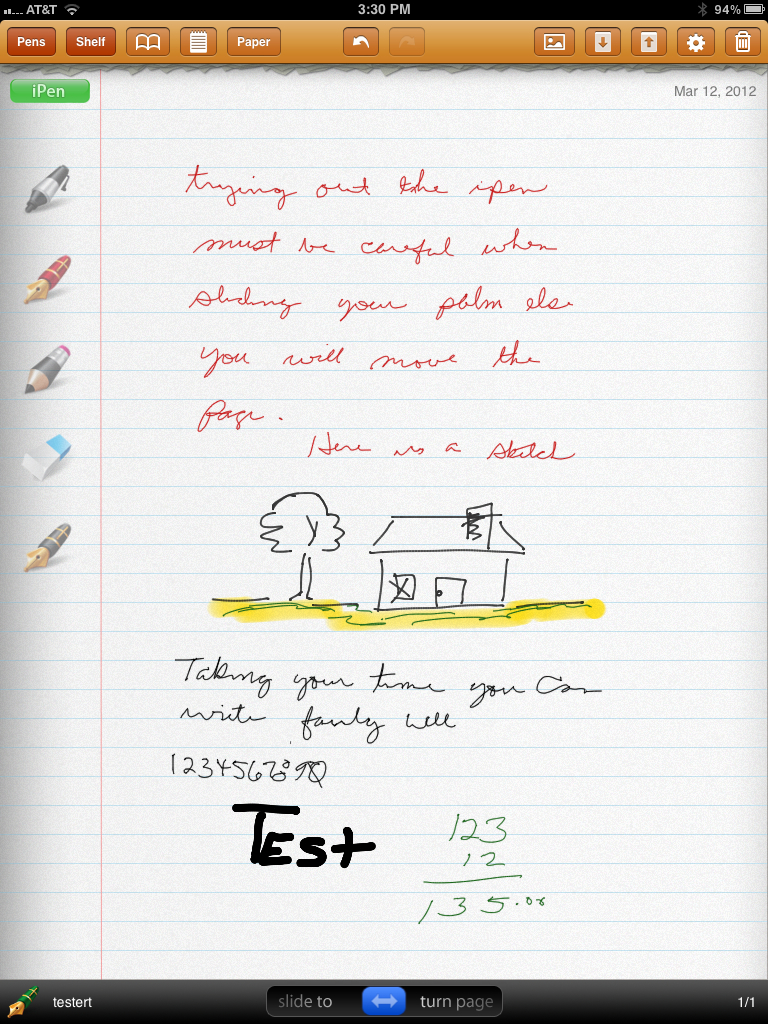 AT&T 3:30 PM 94%
Pens Shelf Paper
iPen Mar 12, 2012
trying out the ipen
must be careful when
sliding your palm else
you will move the
page.
Here is a sketch
Taking your time you can
write fairly well
1234567890
Test
123
12
135.00
testert slide to turn page 1/1